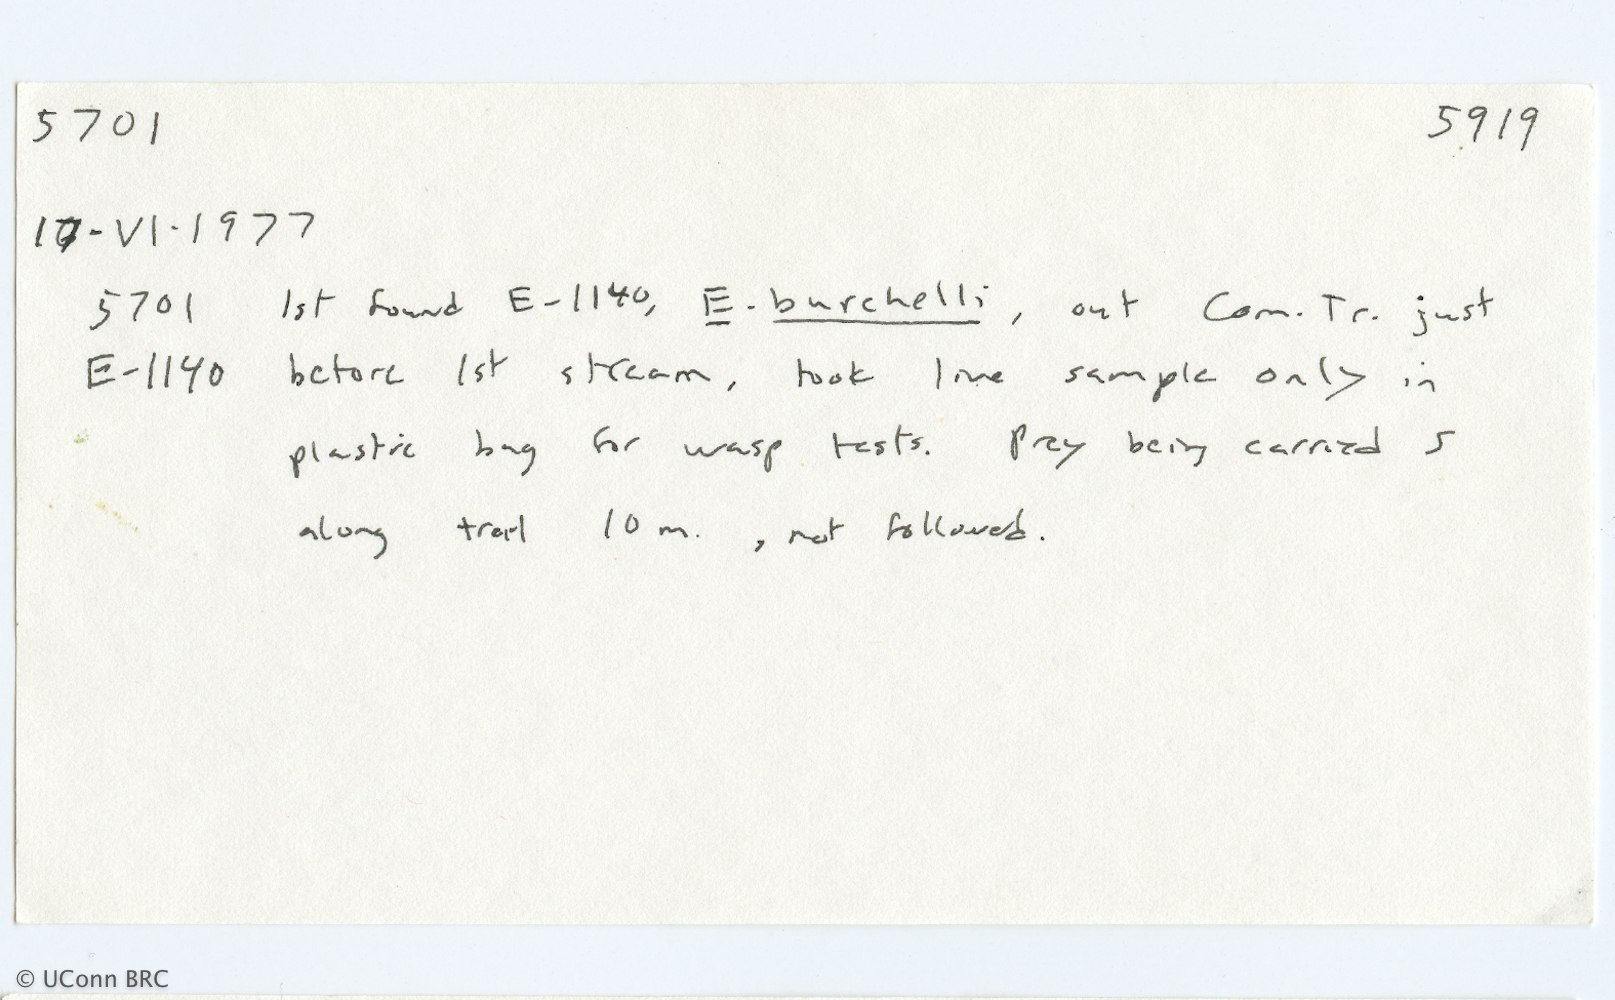 5701 5919
17-VI-1977
5701 1st found E-1140, E. burchelli, out Com. Tr. just
E-1140 before 1st stream, took live sample only in
plastic bag for wasp tests. Prey being carried S
along trail 10 m. , not followed.
© UConn BRC